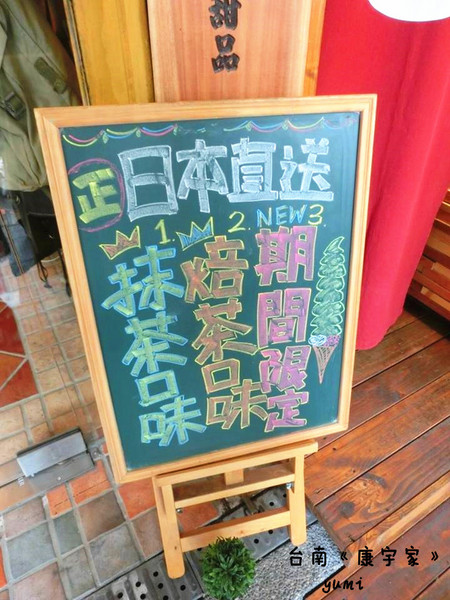 甜品
正 日本直送
1. 2. NEW 3.
抹茶口味
焙茶口味
期間限定
台南《康宇家》
yumi